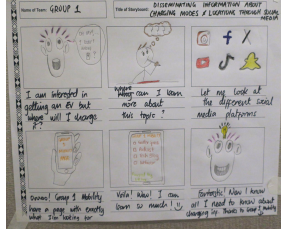 Name of Team: GROUP 1
Title of Storyboard:
DISSEMINATING INFORMATION ABOUT
CHARGING MODES & LOCATIONS THROUGH SOCIAL
MEDIA
I am interested in
getting an EV but
where will I charge
it?
where can I learn
more about
this topic?
Let me look at
the different social
media platforms
Group 1 Mobility
have a page with exactly
what I'm looking for
Voila! Wow! I can
learn so much!
Fantastic! Now I know
all I need to know about
charging up. Thanks to Group 1 Mobility